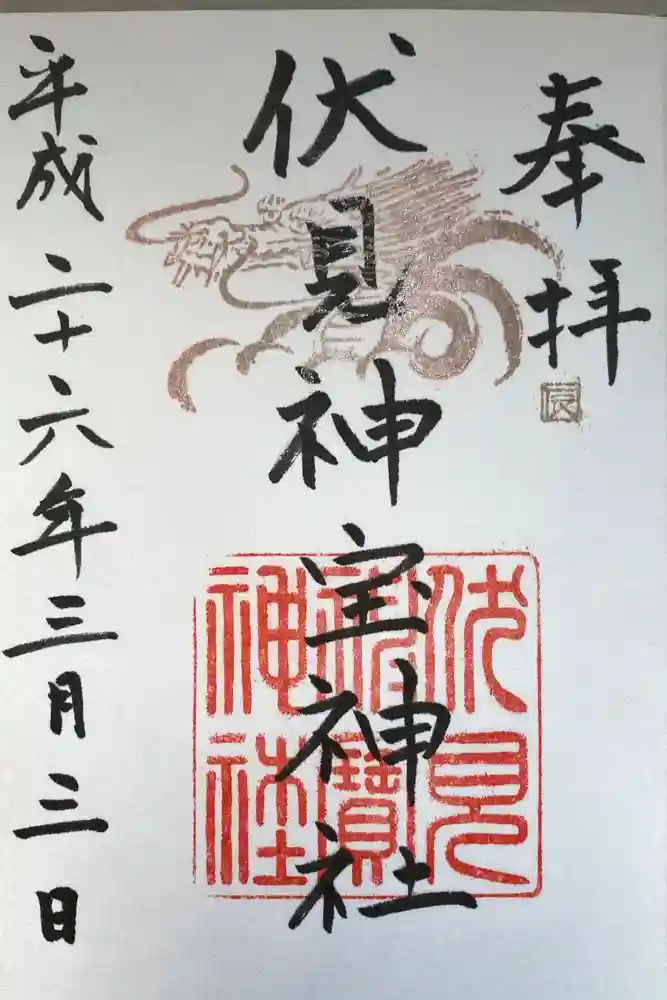 奉拝
伏見神宝神社
伏見
神寳
神社
平成二十六年三月三日